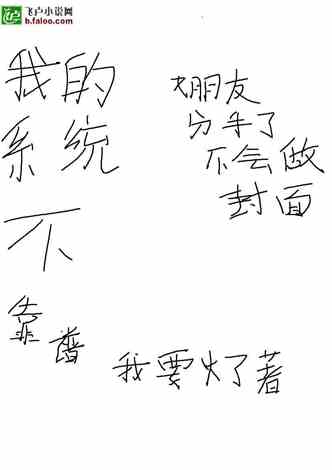 飞卢小说网
b.faloo.com
我的
系统
不
靠普
女朋友
分手了
不会做
封面
我要火了著